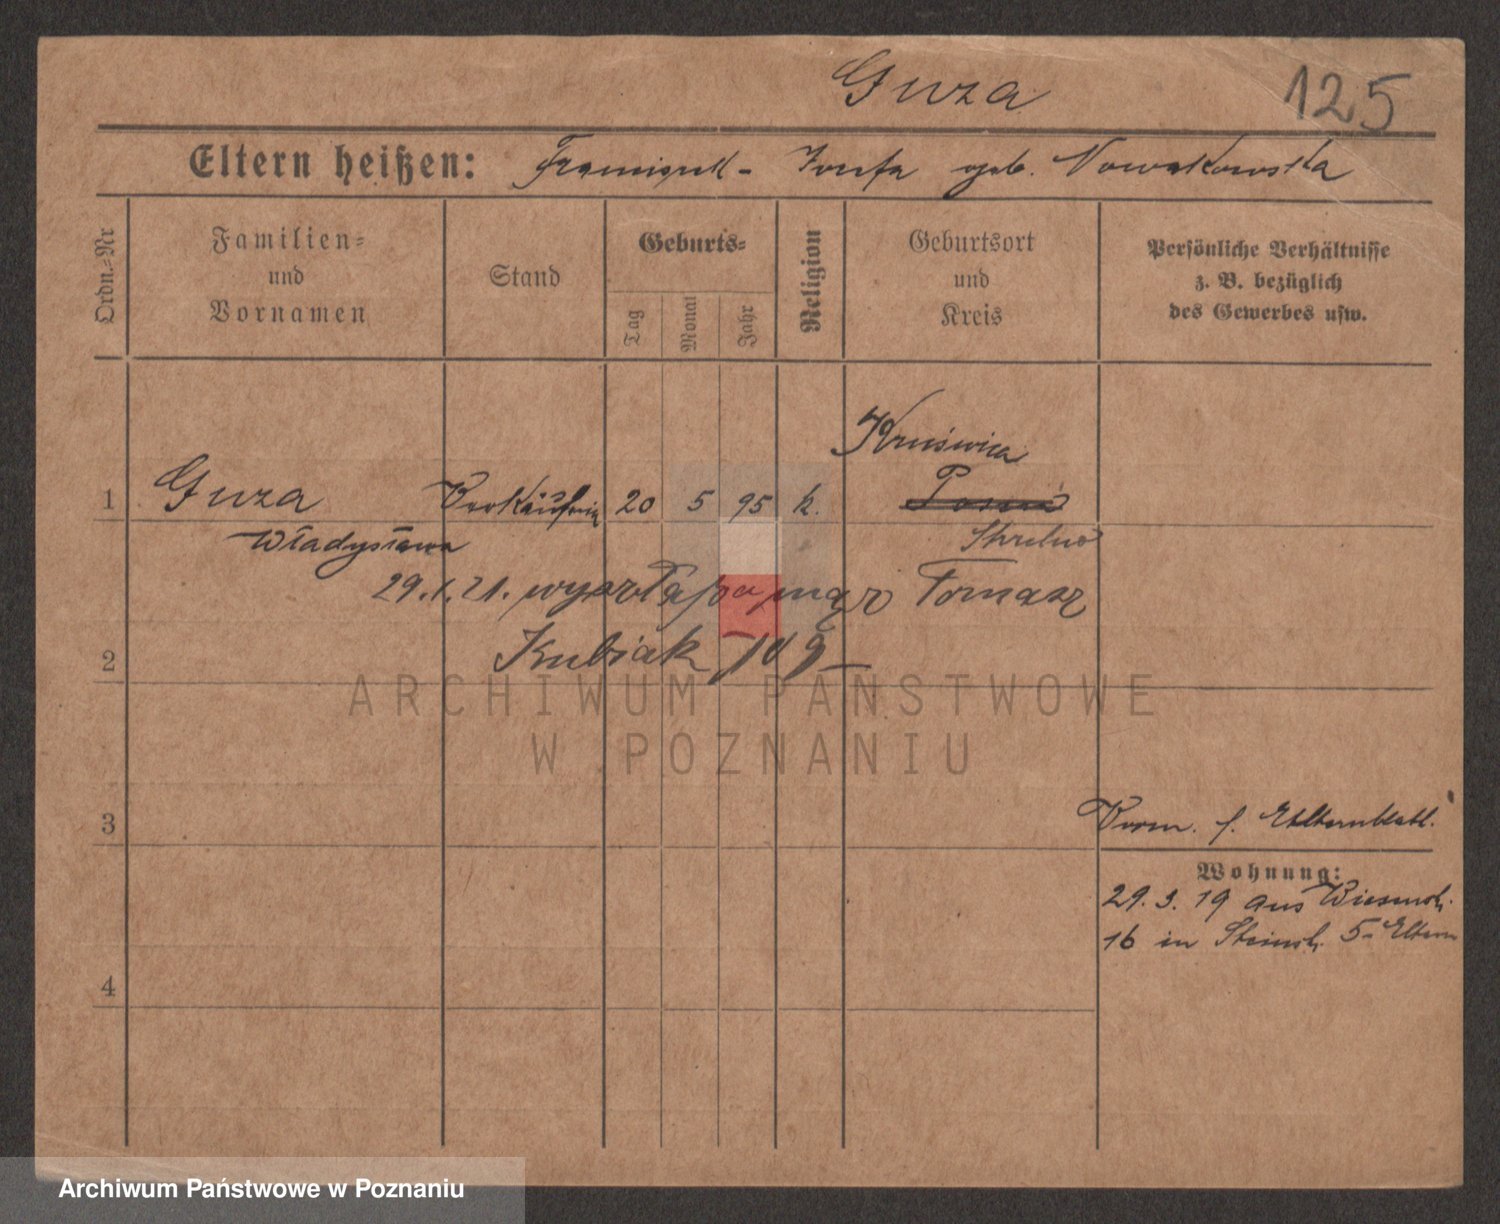 Guza 125
Eltern heißen: Franciszek - Josefa geb. Nowakowska
Ordn.-Nr
Familien-
und
Vornamen
Stand
Geburts-
Tag
Monat
Jahr
Religion
Geburtsort
und
Kreis
Persönliche Verhältnisse
z. B. bezüglich
des Gewerbes usw.
Kruświca
1 Guza Verkäuferin 20 5 95 k. Posen
Władysława Strelno
29.1.21. wyszła za mąż Tomasz
2 Kubiak
ARCHIWUM PAŃSTWOWE
W POZNANIU
3 Vorm. f. Elternblatt.
Wohnung:
29. 3. 19 aus Wiesenstr.
16 in Steinstr. 5 - Eltern
4
Archiwum Państwowe w Poznaniu